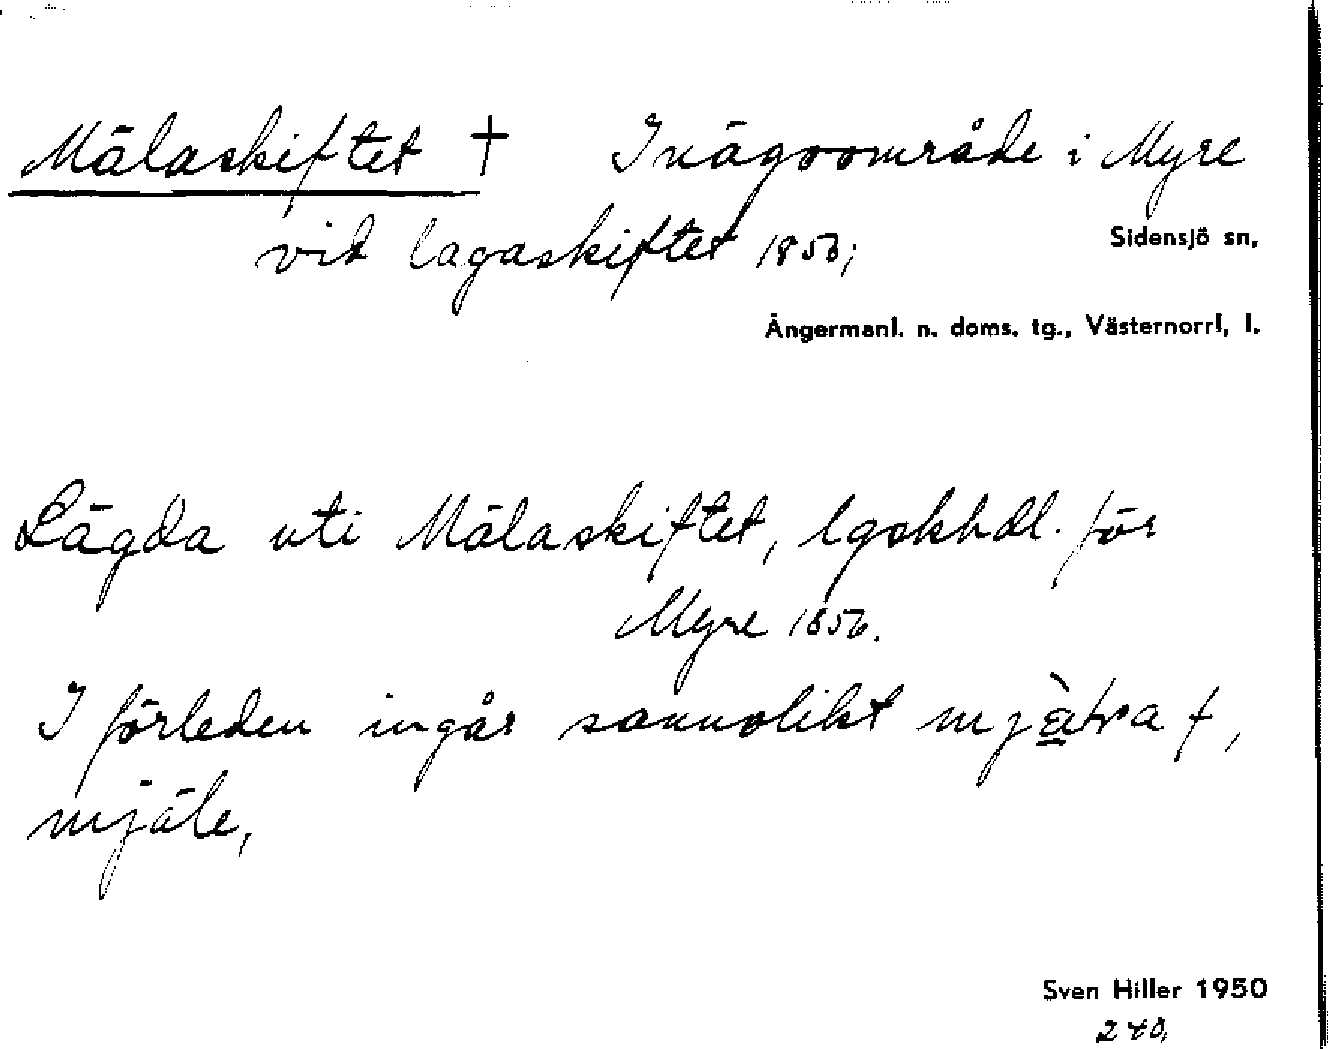 Mälaskiftet † Inägoområde i Myre
vid lagaskiftet 1856;
Sidensjö sn,
Ångermanl. n. doms. tg., Västernorrl, l.
Lägda uti Mälaskiftet, lgskhdl. för
Myre 1856.
I förleden ingår sannolikt f,
mjäle,
Sven Hiller 1950
240,